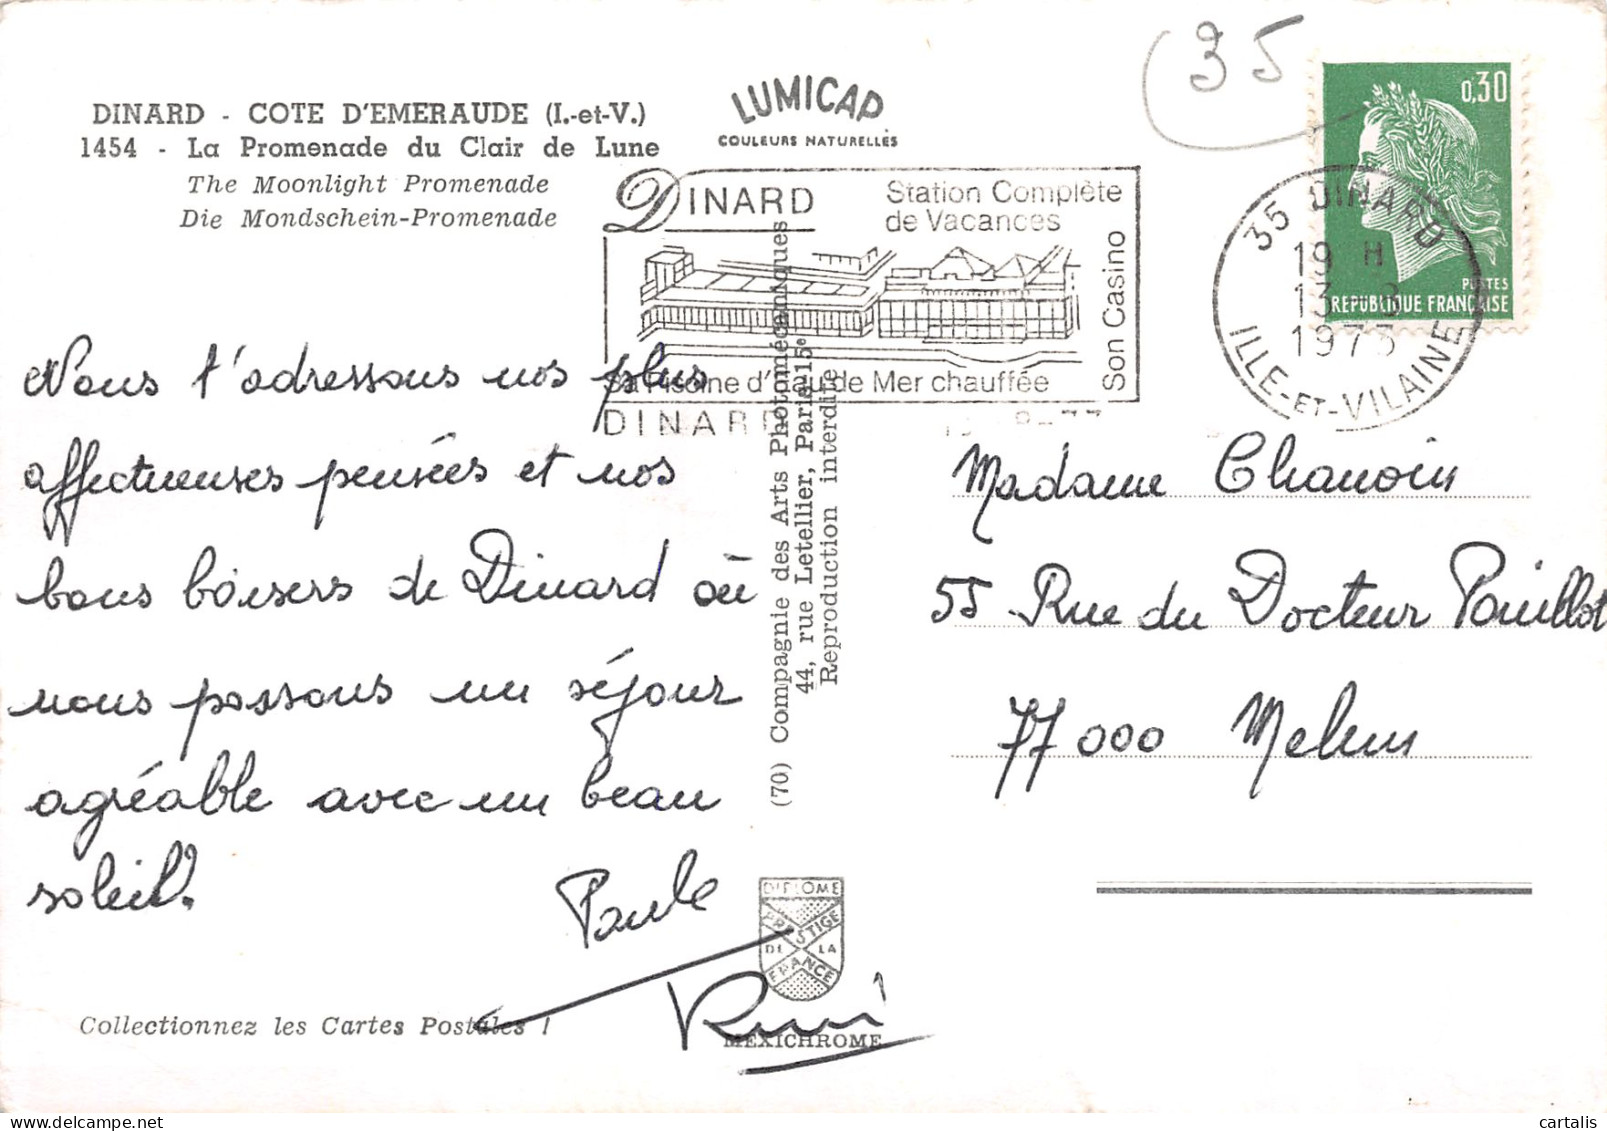 35
DINARD - COTE D'EMERAUDE (I.-et-V.)
1454 - La Promenade du Clair de Lune
The Moonlight Promenade
Die Mondschein-Promenade
LUMICAP
COULEURS NATURELLES
DINARD
Station Complète
de Vacances
Son Casino
Sa Piscine d'Eau de Mer chauffée
DINARD
0,30
POSTES
REPUBLIQUE FRANÇAISE
35 DINARD
19 H
13 - 8
1973
ILLE-ET-VILAINE
Nous t'adressons nos plus
affectueuses pensées et nos
bons baisers de Dinard où
nous passons un séjour
agréable avec un beau
soleil.
Paule
(70) Compagnie des Arts Photomécaniques
44, rue Letellier, Paris 15e
Reproduction interdite
Madame Chanoin
55 Rue du Docteur Pouillot
77000 Melun
DIPLOME
PRESTIGE
DE LA
FRANCE
MEXICHROME
Collectionnez les Cartes Postales !
cartalis
delcampe.net